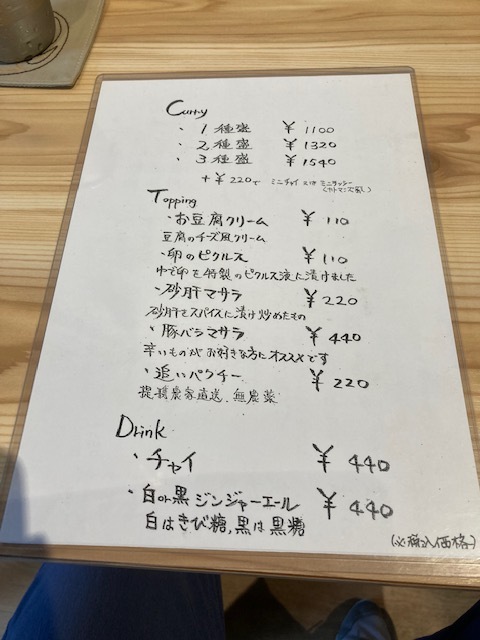 Curry
・1種盛 ¥1100
・2種盛 ¥1320
・3種盛 ¥1540
+¥220で ミニチャイ又はミニラッシー
Topping
・お豆腐クリーム ¥110
豆腐のチーズ風クリーム
・卵のピクルス ¥110
ゆで卵を特製のピクルス液に漬けました
・砂肝マサラ ¥220
砂肝をスパイスに漬け炒めたもの
・豚バラマサラ ¥440
辛いものがお好きな方にオススメです
・追いパクチー ¥220
提携農家直送、無農薬
Drink
・チャイ ¥440
・白or黒ジンジャーエール ¥440
白はきび糖、黒は黒糖
税込価格)